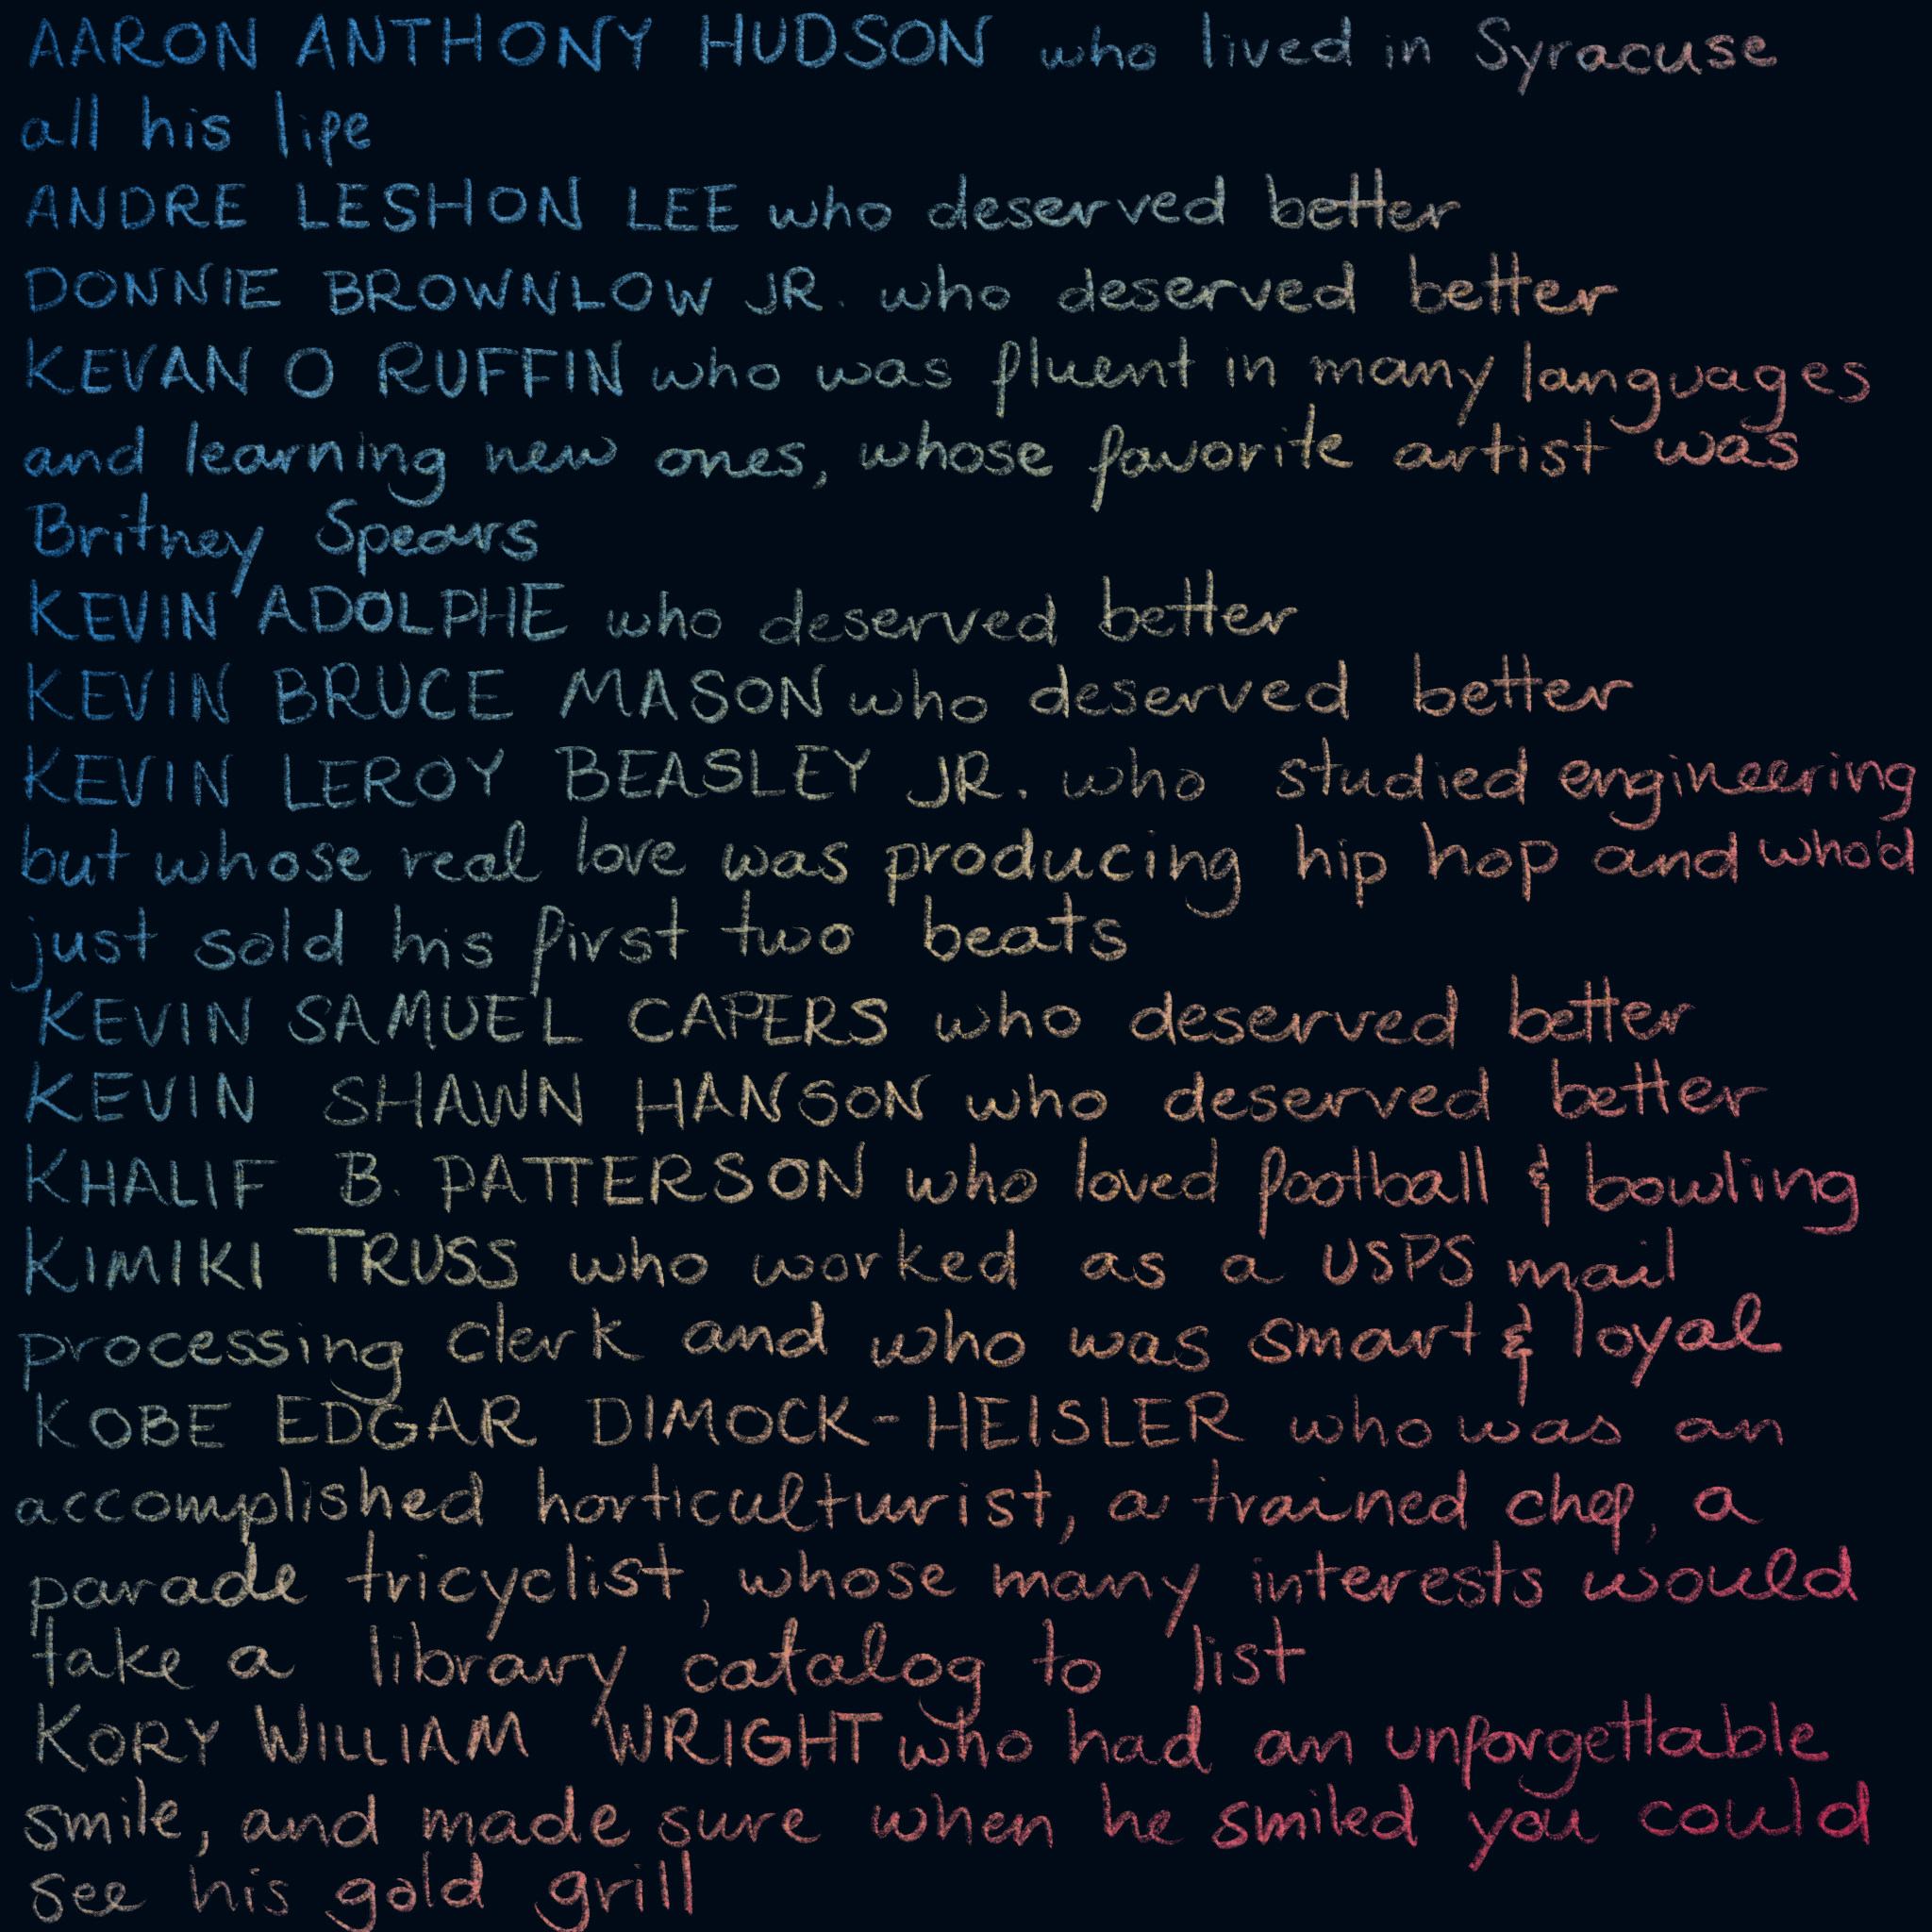 AARON ANTHONY HUDSON who lived in Syracuse
all his life
ANDRE LESHON LEE who deserved better
DONNIE BROWNLOW JR. who deserved better
KEVAN O RUFFIN who was fluent in many languages
and learning new ones, whose favorite artist was
Britney Spears
KEVIN ADOLPHE who deserved better
KEVIN BRUCE MASON who deserved better
KEVIN LEROY BEASLEY JR. who studied engineering
but whose real love was producing hip hop and who'd
just sold his first two beats
KEVIN SAMUEL CAPERS who deserved better
KEVIN SHAWN HANSON who deserved better
KHALIF B. PATTERSON who loved football & bowling
KIMIKI TRUSS who worked as a USPS mail
processing clerk and who was smart & loyal
KOBE EDGAR DIMOCK-HEISLER who was an
accomplished horticulturist, a trained chef, a
parade tricyclist, whose many interests would
take a library catalog to list
KORY WILLIAM WRIGHT who had an unforgettable
smile, and made sure when he smiled you could
see his gold grill